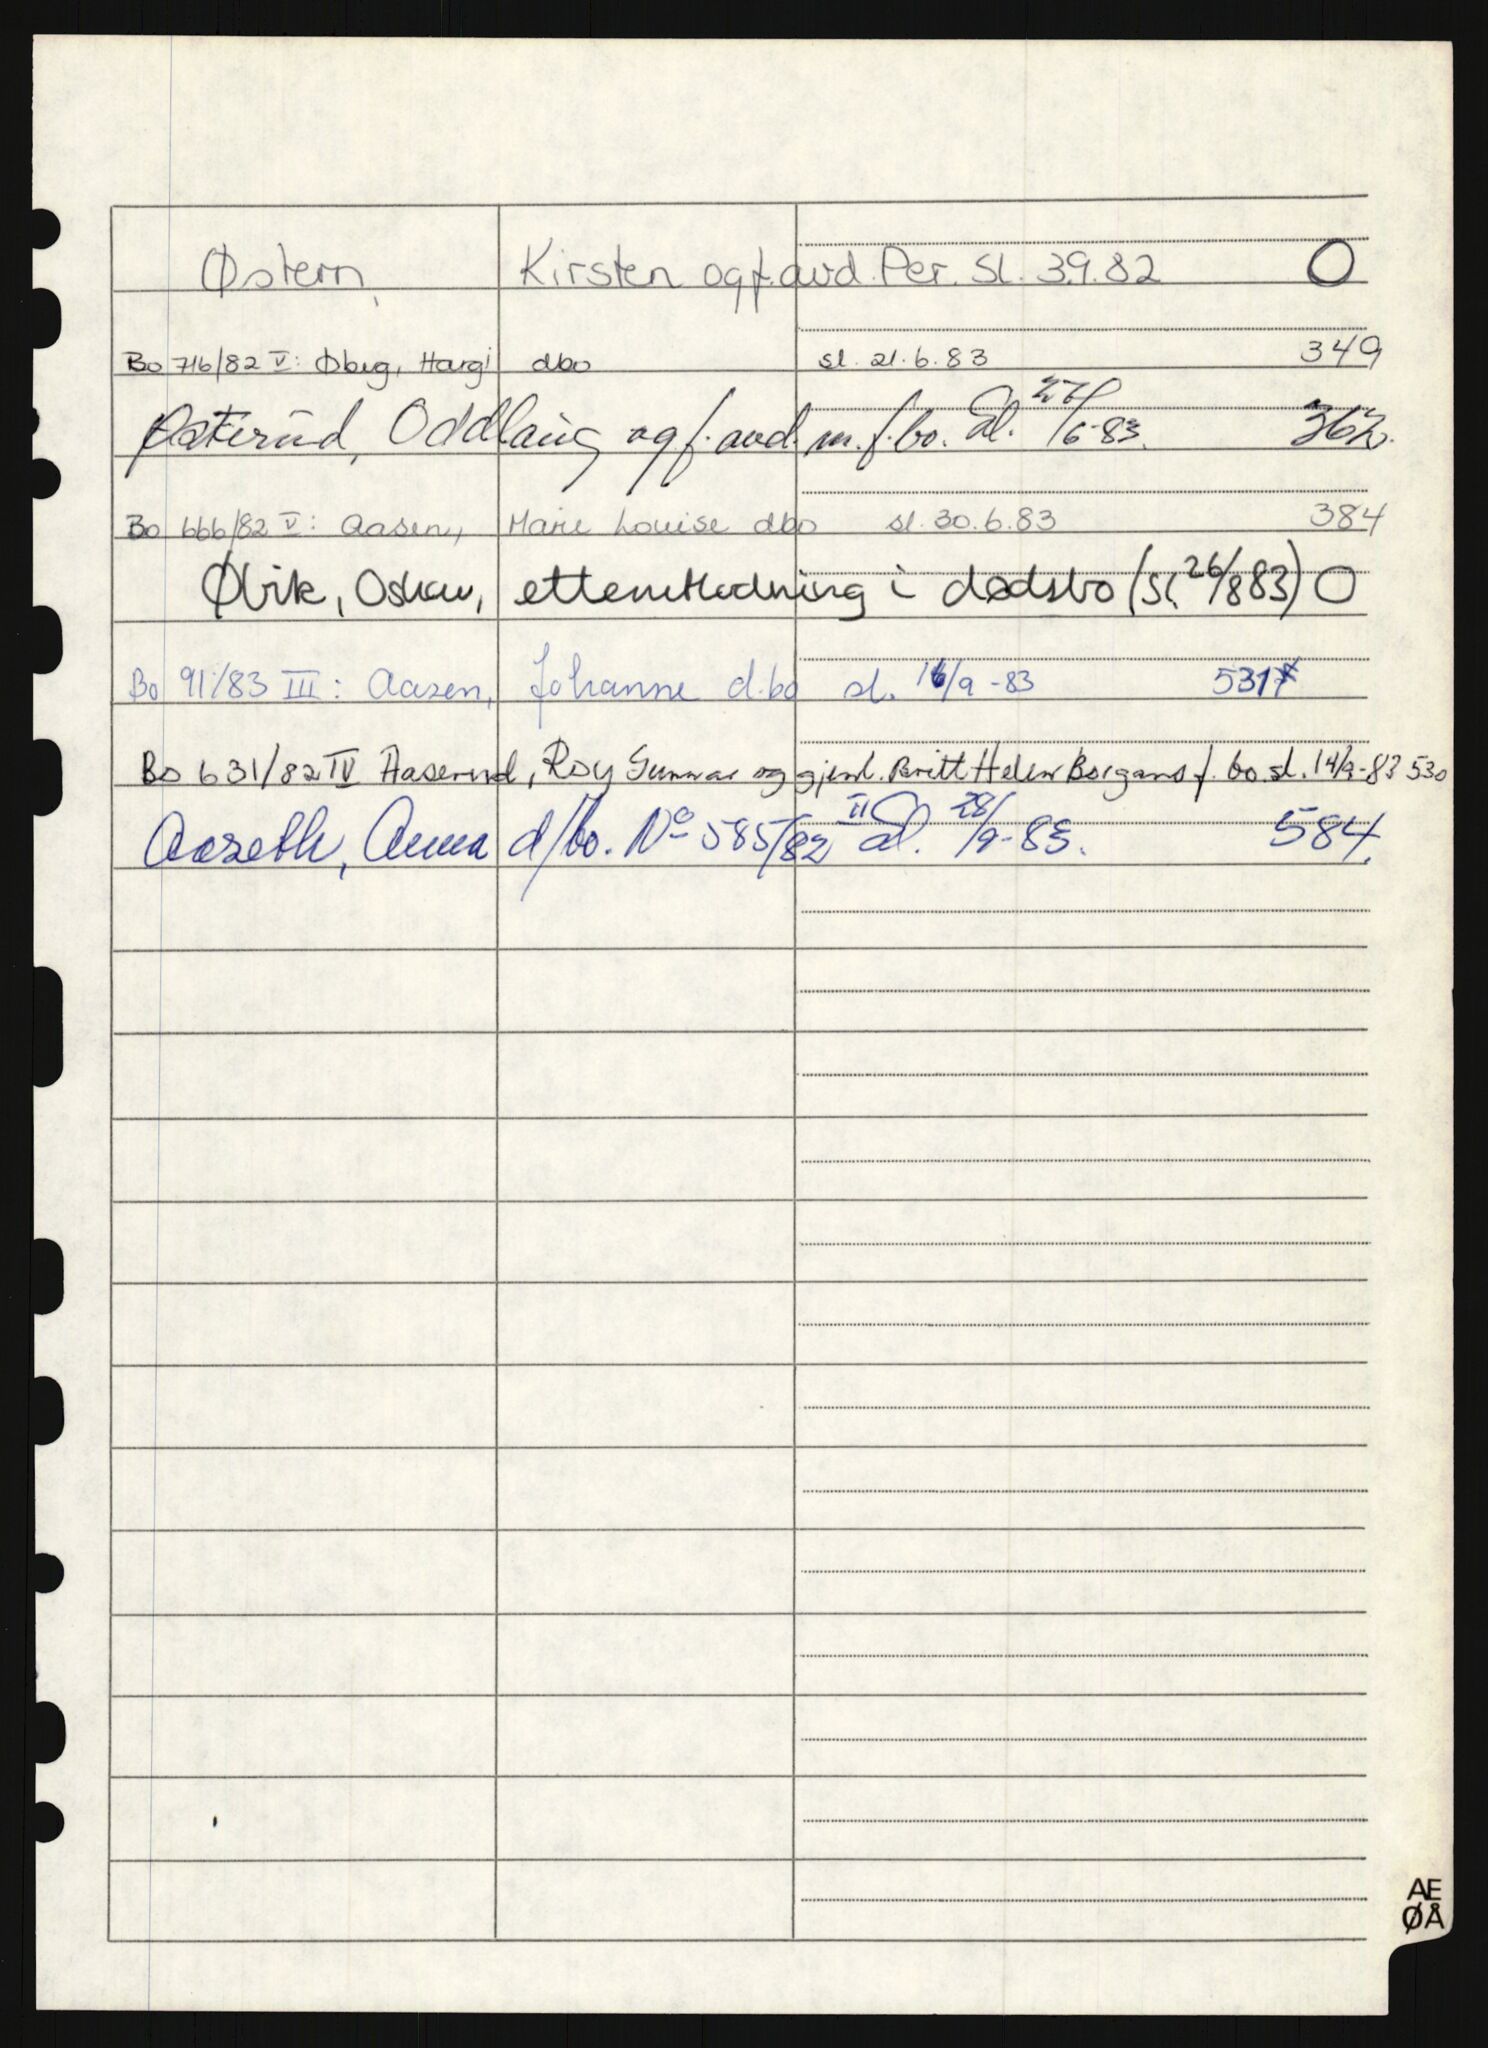 Østern, Kirsten og f. avd. Per. Sl. 3.9.82 O
Bo 716/82 V: Øbeg, Hargi dbo sl. 21.6.83 349
Østerud, Oddlaug og f. avd. m. f. bo. Sl. 27/6-83. 362.
Bo 666/82 V: Aasen, Marie Louise dbo sl. 30.6.83 384
Øvik, Oskar, etterutlodning i dødsbo (Sl. 26/8 83) O
Bo 91/83 III: Aasen, Johanne d.bo sl. 16/9 -83 531
Bo 631/82 IV Aaserud, Roy Gunnar og gjenl. Britt Helen Borgans f. bo. sl. 14/9-83 530
Aaseth, Anna d/bo. No 585/82 II Sl. 28/9-83. 584.
AE
ØÅ